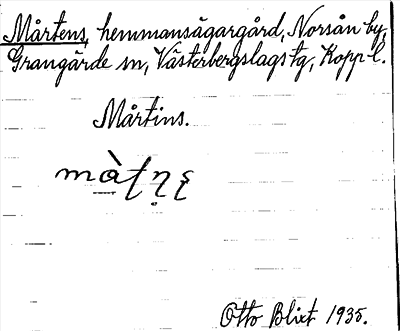 Mårtens, hemmansägargård, Norsån by,
Grangärde sn, Västerbergslags tg, Kopp. l.
Mårtins.
Otto Blixt 1935.